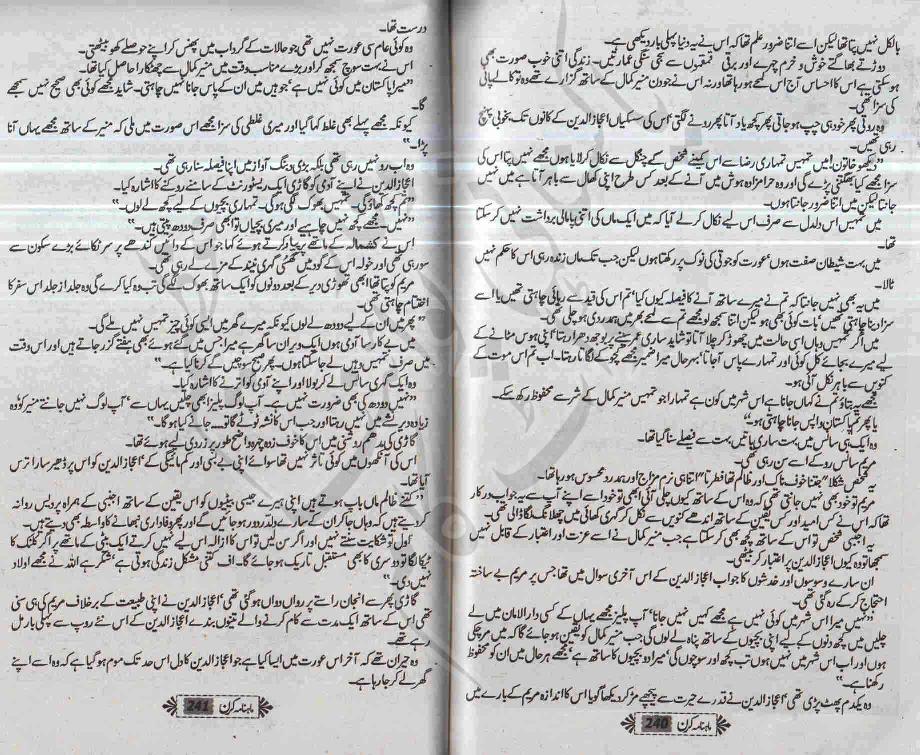 بالکل نہیں پتا تھا لیکن اسے اتنا ضرور علم تھا کہ اس نے یہ دنیا پہلی بار دیکھی ہے۔
دوڑتے بھاگتے خوش و خرم چہرے اور برقی قمقموں سے سجی سنگی عمارتیں۔ زندگی اتنی خوب صورت بھی
ہو سکتی ہے اس کا احساس آج اس لمحے ہو رہا تھا ورنہ اس نے جو دن منیر کمال کے ساتھ گزارے تھے وہ تو کالے پانی
کی سزا تھی۔
وہ روتی پھر خود ہی چپ ہو جاتی پھر کچھ یاد آتا پھر رونے لگتی، اس کی سسکیاں اعجاز الدین کے کانوں تک بخوبی پہنچ
رہی تھیں۔
”دیکھو خاتون! میں تمہیں تمہاری رضا سے اس کمینے شخص کے چنگل سے نکال کر لایا ہوں مجھے نہیں پتا اس کی
سزا مجھے کیا بھگتنی پڑے گی اور وہ حرامزادہ ہوش میں آنے کے بعد کس طرح اپنی کھال سے باہر آتا ہے میں نہیں
جانتا لیکن میں اتنا ضرور جانتا ہوں۔
میں تمہیں اس دلدل سے صرف اس لیے نکال کر لے آیا کہ میں ایک ماں کی اتنی پامالی برداشت نہیں کر سکتا
تھا۔
میں بہت شیطان صفت ہوں، عورت کو جوتی کی نوک پر رکھتا ہوں لیکن جب تک ماں زندہ رہی اس کا حکم نہیں
ٹالا۔
میں یہ بھی نہیں جانتا کہ تم نے میرے ساتھ آنے کا فیصلہ کیوں کیا، تم اس کی قید سے رہائی چاہتی تھیں یا اسے
سزا دینا چاہتی تھیں، بات کوئی بھی ہو لیکن اتنا سمجھ لو مجھے تم سے لمحے بھر میں ہمدردی ہو چلی تھی۔
میں اگر تمہیں وہاں اسی حالت میں چھوڑ کر چلا آتا تو شاید ساری عمر سینے پر بوجھ دھرا رہتا، اپنی ہوس مٹانے کے
لیے میرے بجائے کل کوئی اور تمہارے پاس آ جاتا، بہرحال میرا ضمیر مجھے کچوکے لگاتا رہتا۔ اب تم اس موت کے
کنویں سے باہر نکل آئی ہو۔
مجھے یہ بتاؤ تم نے کہاں جانا ہے اس شہر میں کون ہے تمہارا جو تمہیں منیر کمال کے شر سے محفوظ رکھ سکے۔
یا پھر تم پاکستان واپس جانا چاہتی ہو۔“
وہ ایک ہی سانس میں بہت ساری باتیں بہت سے فیصلے سنا گیا تھا۔
مریم سانس روکے اسے سن رہی تھی۔
یہ شخص شکلاً ”جتنا خوفناک اور ظالم تھا فطرتاً“ اتنا ہی نرم مزاج اور ہمدرد محسوس ہو رہا تھا۔
مریم تو خود بھی نہیں جانتی تھی کہ وہ اس کے ساتھ کیوں چلی آئی ابھی تو خود اسے اپنے آپ سے یہ جواب درکار
تھا کہ اس نے کس امید اور کس یقین کے ساتھ اندھے کنویں سے نکل کر گہری کھائی میں چھلانگ لگا ڈالی تھی۔
یہ اجنبی شخص تو اس کے ساتھ کچھ بھی کر سکتا ہے جب منیر کمال نے اسے عزت اور اعتبار کے قابل نہیں
سمجھا تو وہ کیوں اعجاز الدین پر اعتبار کر بیٹھی۔
ان سارے وسوسوں اور خدشوں کا جواب اعجاز الدین کے اس آخری سوال میں تھا جس پر مریم بے ساختہ
احتجاج کر کے رہ گئی تھی۔
”نہیں میرا اس شہر میں کوئی نہیں ہے مجھے کہیں نہیں جانا، آپ پلیز مجھے یہاں کے کسی دارالامان میں لے
چلیں میں کچھ دنوں کے لیے اپنی بچیوں کے ساتھ پناہ لے لوں گی جب منیر کمال کو یقین ہو جائے گا کہ میں مر چکی
ہوں اور اب اس شہر میں نہیں ہوں تب کچھ اور سوچوں گی، میرا دو بچیوں کا ساتھ ہے، مجھے ہر حال میں ان کو محفوظ
رکھنا ہے۔“
وہ یکدم پھٹ پڑی تھی، اعجاز الدین نے قدرے حیرت سے پیچھے مڑ کر دیکھا گویا اس کا اندازہ مریم کے بارے میں
ماہنامہ کرن 240
درست تھا۔
وہ کوئی عام سی عورت نہیں تھی جو حالات کے گرداب میں پھنس کر اپنے حوصلے کھو بیٹھتی۔
اس نے بہت سوچ سمجھ کر اور بڑے مناسب وقت میں منیر کمال سے چھٹکارا حاصل کیا تھا۔
”میرا پاکستان میں کوئی نہیں ہے جو ہیں میں ان کے پاس جانا نہیں چاہتی۔ شاید مجھے کوئی بھی صحیح نہیں سمجھے
گا۔
کیونکہ مجھے پہلے بھی غلط کہا گیا اور میری غلطی کی سزا مجھے اس صورت میں ملی کہ منیر کے ساتھ مجھے یہاں آنا
پڑا۔“
وہ اب رو نہیں رہی تھی بلکہ بڑی دبنگ آواز میں اپنا فیصلہ سنا رہی تھی۔
اعجاز الدین نے اپنے آدمی کو گاڑی ایک ریسٹورنٹ کے سامنے روکنے کا اشارہ کیا۔
”تم کچھ کھاؤ گی۔ تمہیں بھوک لگی ہوگی۔ تمہاری بچیوں کے لیے کچھ لے لوں۔“
”نہیں۔ مجھے کچھ نہیں چاہیے اور میری بچیاں تو ابھی صرف دودھ پیتی ہیں۔“
اس نے کشمالہ کے ماتھے پر پیار کرتے ہوئے کہا جو اس کے دائیں کندھے پر سر ٹکائے بڑے سکون سے
سو رہی تھی اور خولہ اس کے گود میں گھسی گہری نیند کے مزے لے رہی تھی۔
مریم کو پتا تھا ابھی تھوڑی دیر کے بعد دونوں کو ایک ساتھ بھوک لگے گی تب وہ کیا کرے گی وہ جلد از جلد اس سفر کا
اختتام چاہتی تھی۔
”پھر میں ان کے لیے دودھ لے لوں کیونکہ میرے گھر میں ایسی کوئی چیز تمہیں نہیں ملے گی۔
میں بے کار سا آدمی ہوں ایک ویران سا گھر ہے میرا جس میں گئے ہوئے بھی ہفتے گزر جاتے ہیں اور اس وقت
میں صرف تمہیں وہیں لے جا سکتا ہوں۔ پھر صبح سوچیں گے کرنا کیا ہے۔“
وہ ایک گہری سانس لے کر بولا اور اپنے آدمی کو اترنے کا اشارہ کیا۔
”نہیں دودھ کی بھی ضرورت نہیں ہے۔ آپ لوگ پلیز ابھی چلیں یہاں سے، آپ لوگ نہیں جانتے منیر کو، وہ
زیادہ دیر نشے میں نہیں رہتا اور جب اس کا نشہ ٹوٹے گا تو۔ جانے کیا ہوگا۔“
گاڑی کی مدھم روشنی میں اس کا خوف زدہ چہرہ واضح طور پر زردی لیے ہوئے تھا۔
اس کی آنکھوں میں کوئی تاثر نہیں تھا سوائے اپنی بے بسی اور کم مائیگی کے، اعجاز الدین کو اس پر ڈھیر سارا ترس
آیا تھا۔
”کتنے ظالم ماں باپ ہوتے ہیں اپنی ہیرے جیسی بیٹیوں کو اس یقین کے ساتھ اجنبی کے ہمراہ پردیس روانہ
کر دیتے ہیں کہ وہاں جا کر ان کے سارے دلدر دور ہو جائیں گے اور پھر وفاداری نبھانے کا واسطہ بھی دیتے ہیں۔
اول تو شکایت سنتے نہیں اور اگر سن لیں تو اس کا ازالہ اس لیے نہیں کرتے ایک بیٹی کے ماتھے پر اگر کلنک کا
ٹیکا لگا تو دوسری کا بھی مستقبل تاریک ہو جائے گا۔ اف کتنی مشکل زندگی ہوتی ہے، شکر ہے اللہ نے مجھے اولاد
نہیں دی۔“
گاڑی پھر سے انجان راستے پر رواں دواں ہو گئی تھی، اعجاز الدین نے اپنی طبیعت کے برخلاف مریم کی ہی سنی
تھی اس کے ساتھ ایک مدت سے کام کرنے والے تینوں بندے اعجاز الدین کے اس نئے روپ سے پہلی بار مل
رہے تھے۔
وہ حیران تھے کہ آخر اس عورت میں ایسا کیا ہے جو اعجاز الدین کا دل اس حد تک موم ہو گیا ہے کہ وہ اسے اپنے
گھر لے کر جا رہا ہے۔
ماہنامہ کرن 241